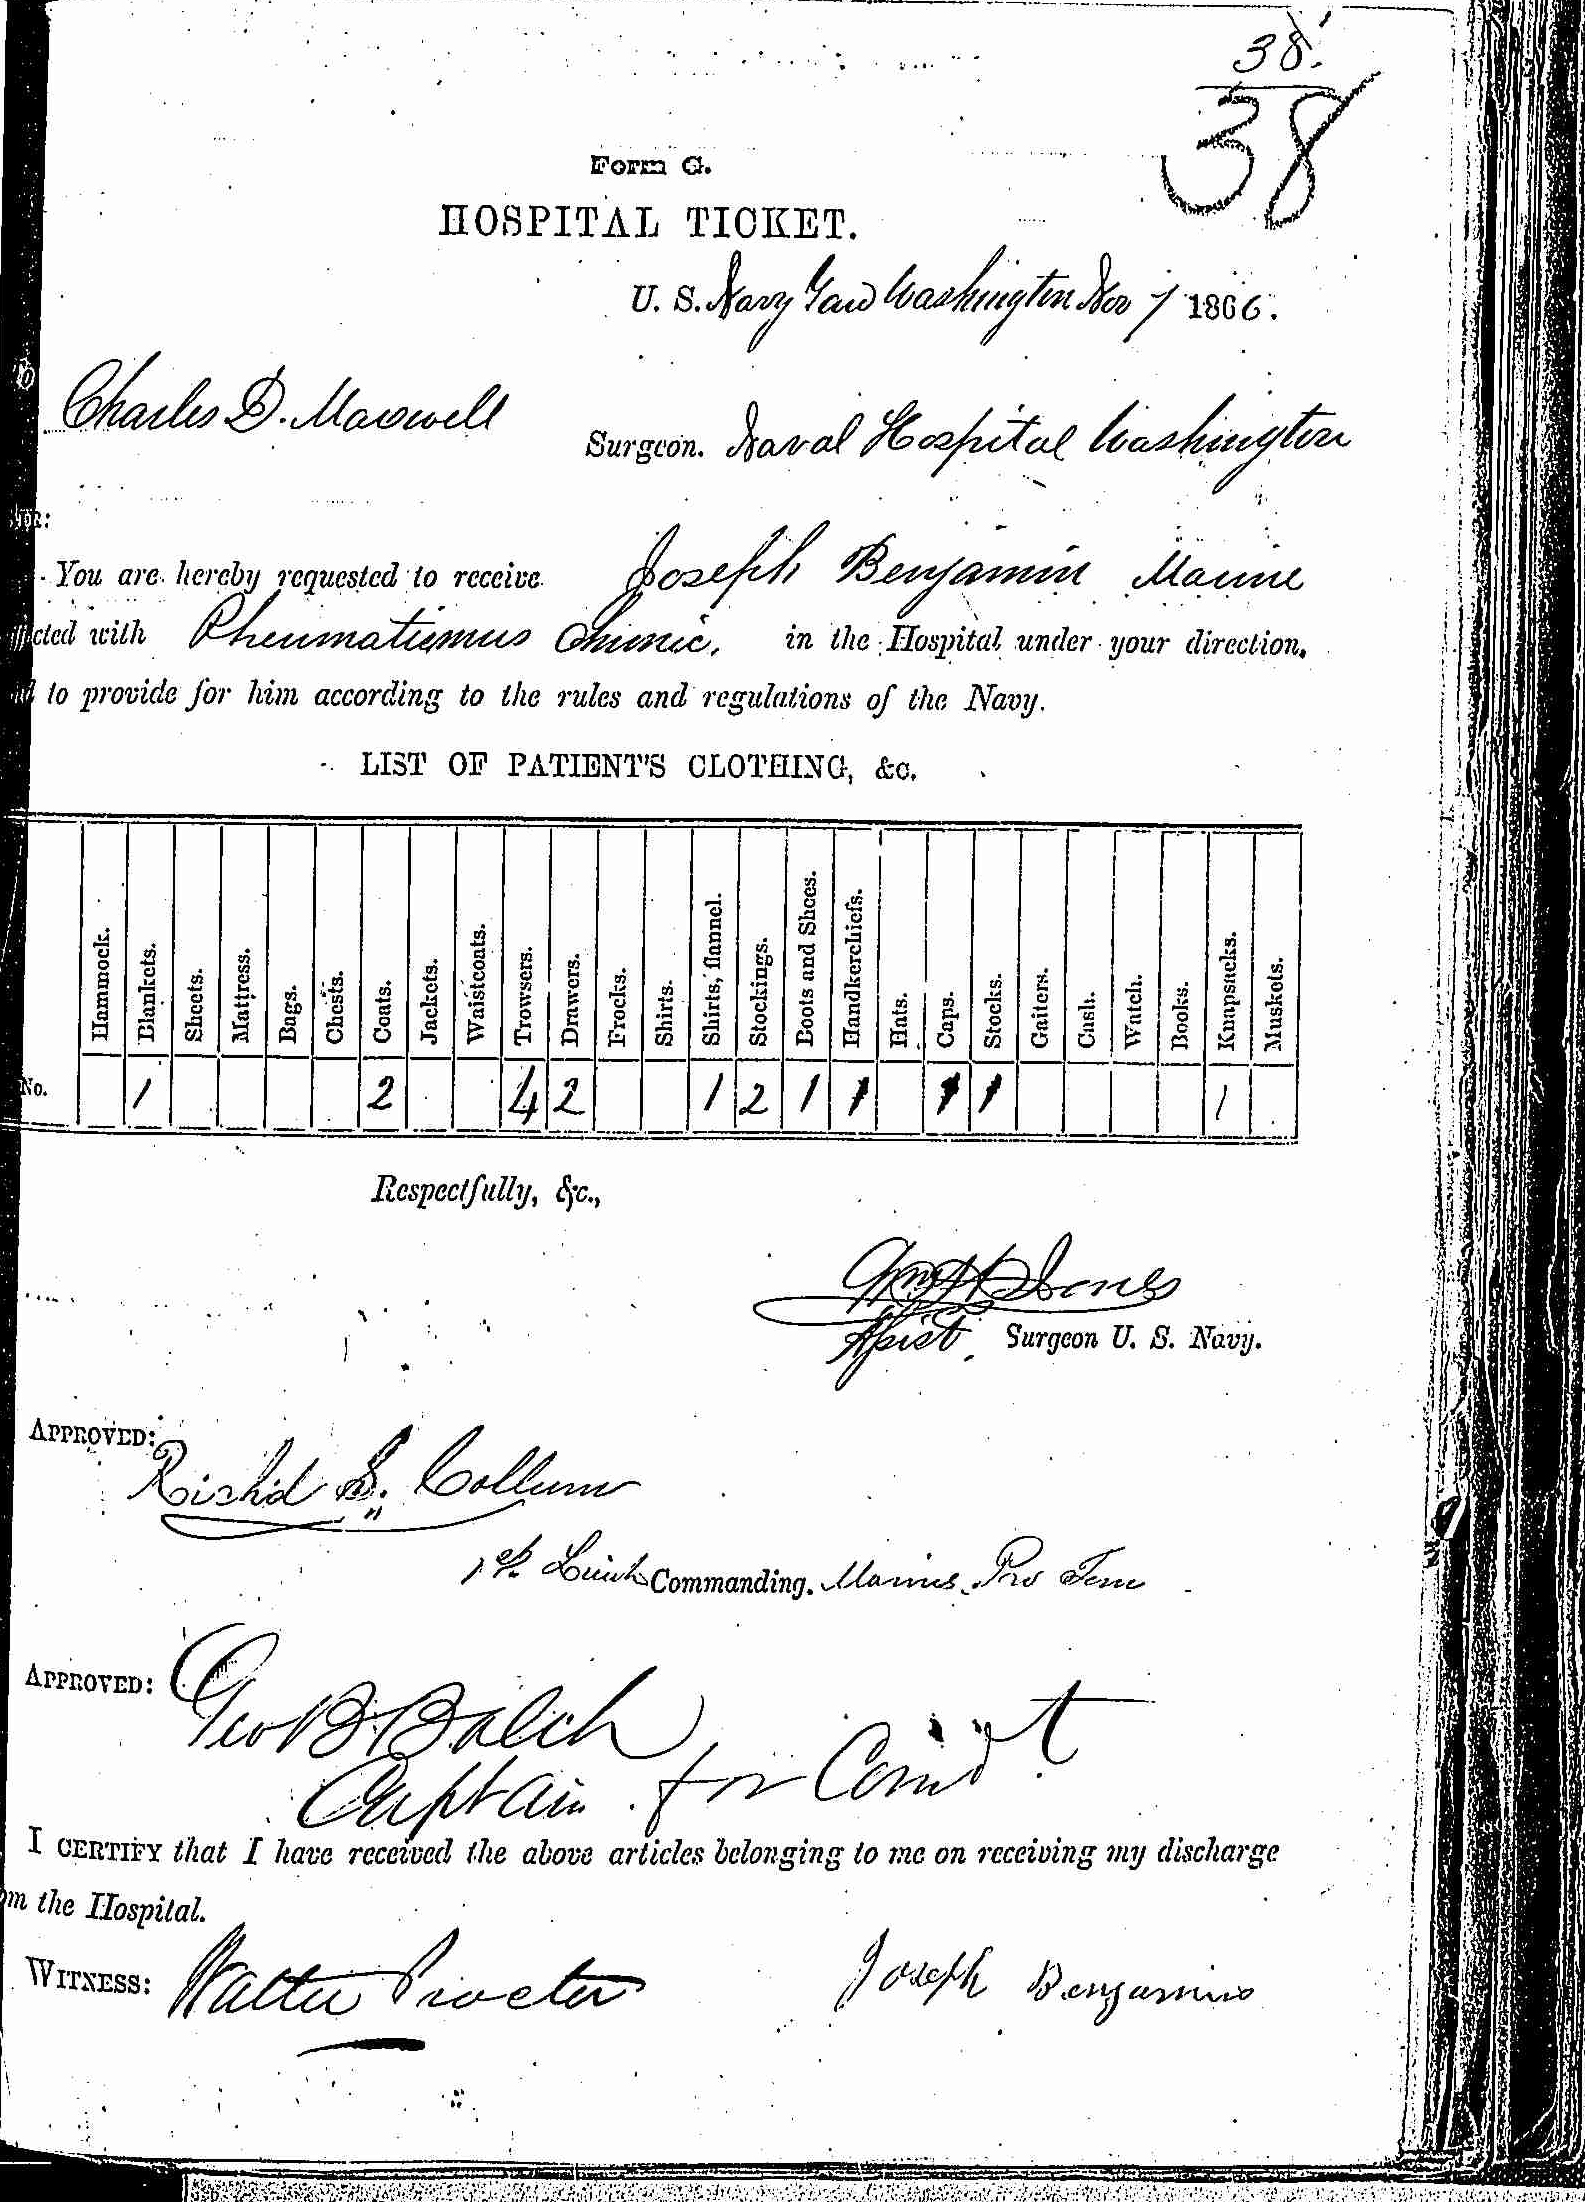 38.
38
Form G.
HOSPITAL TICKET.
U. S. Navy Yard Washington Nov 7 1866.
To
Charles D. Maxwell
Surgeon. Naval Hospital Washington
You are hereby requested to receive Joseph Benjamin Marine
cted with Rheumatismus Chronic, in the Hospital under your direction,
to provide for him according to the rules and regulations of the Navy.
LIST OF PATIENT'S CLOTHING, &c.
Hammock. Blankets. Sheets. Mattress. Bags. Chests. Coats. Jackets. Waistcoats. Trowsers. Drawers. Frocks. Shirts. Shirts, flannel. Stockings. Boots and Shoes. Handkerchiefs. Hats. Caps. Stocks. Gaiters. Cash. Watch. Books. Knapsacks. Muskets.
No. 1 2 4 2 1 2 1 1 1 1 1
Respectfully, &c.,
Wm H Jones
Asist. Surgeon U. S. Navy.
APPROVED:
Rich'd S. Collum
1st Lieut Commanding. Marines Pro Tem
APPROVED:
Geo B Balch
Captain for Comd't
I CERTIFY that I have received the above articles belonging to me on receiving my discharge
om the Hospital.
WITNESS: Walter Procter Joseph Benjamin